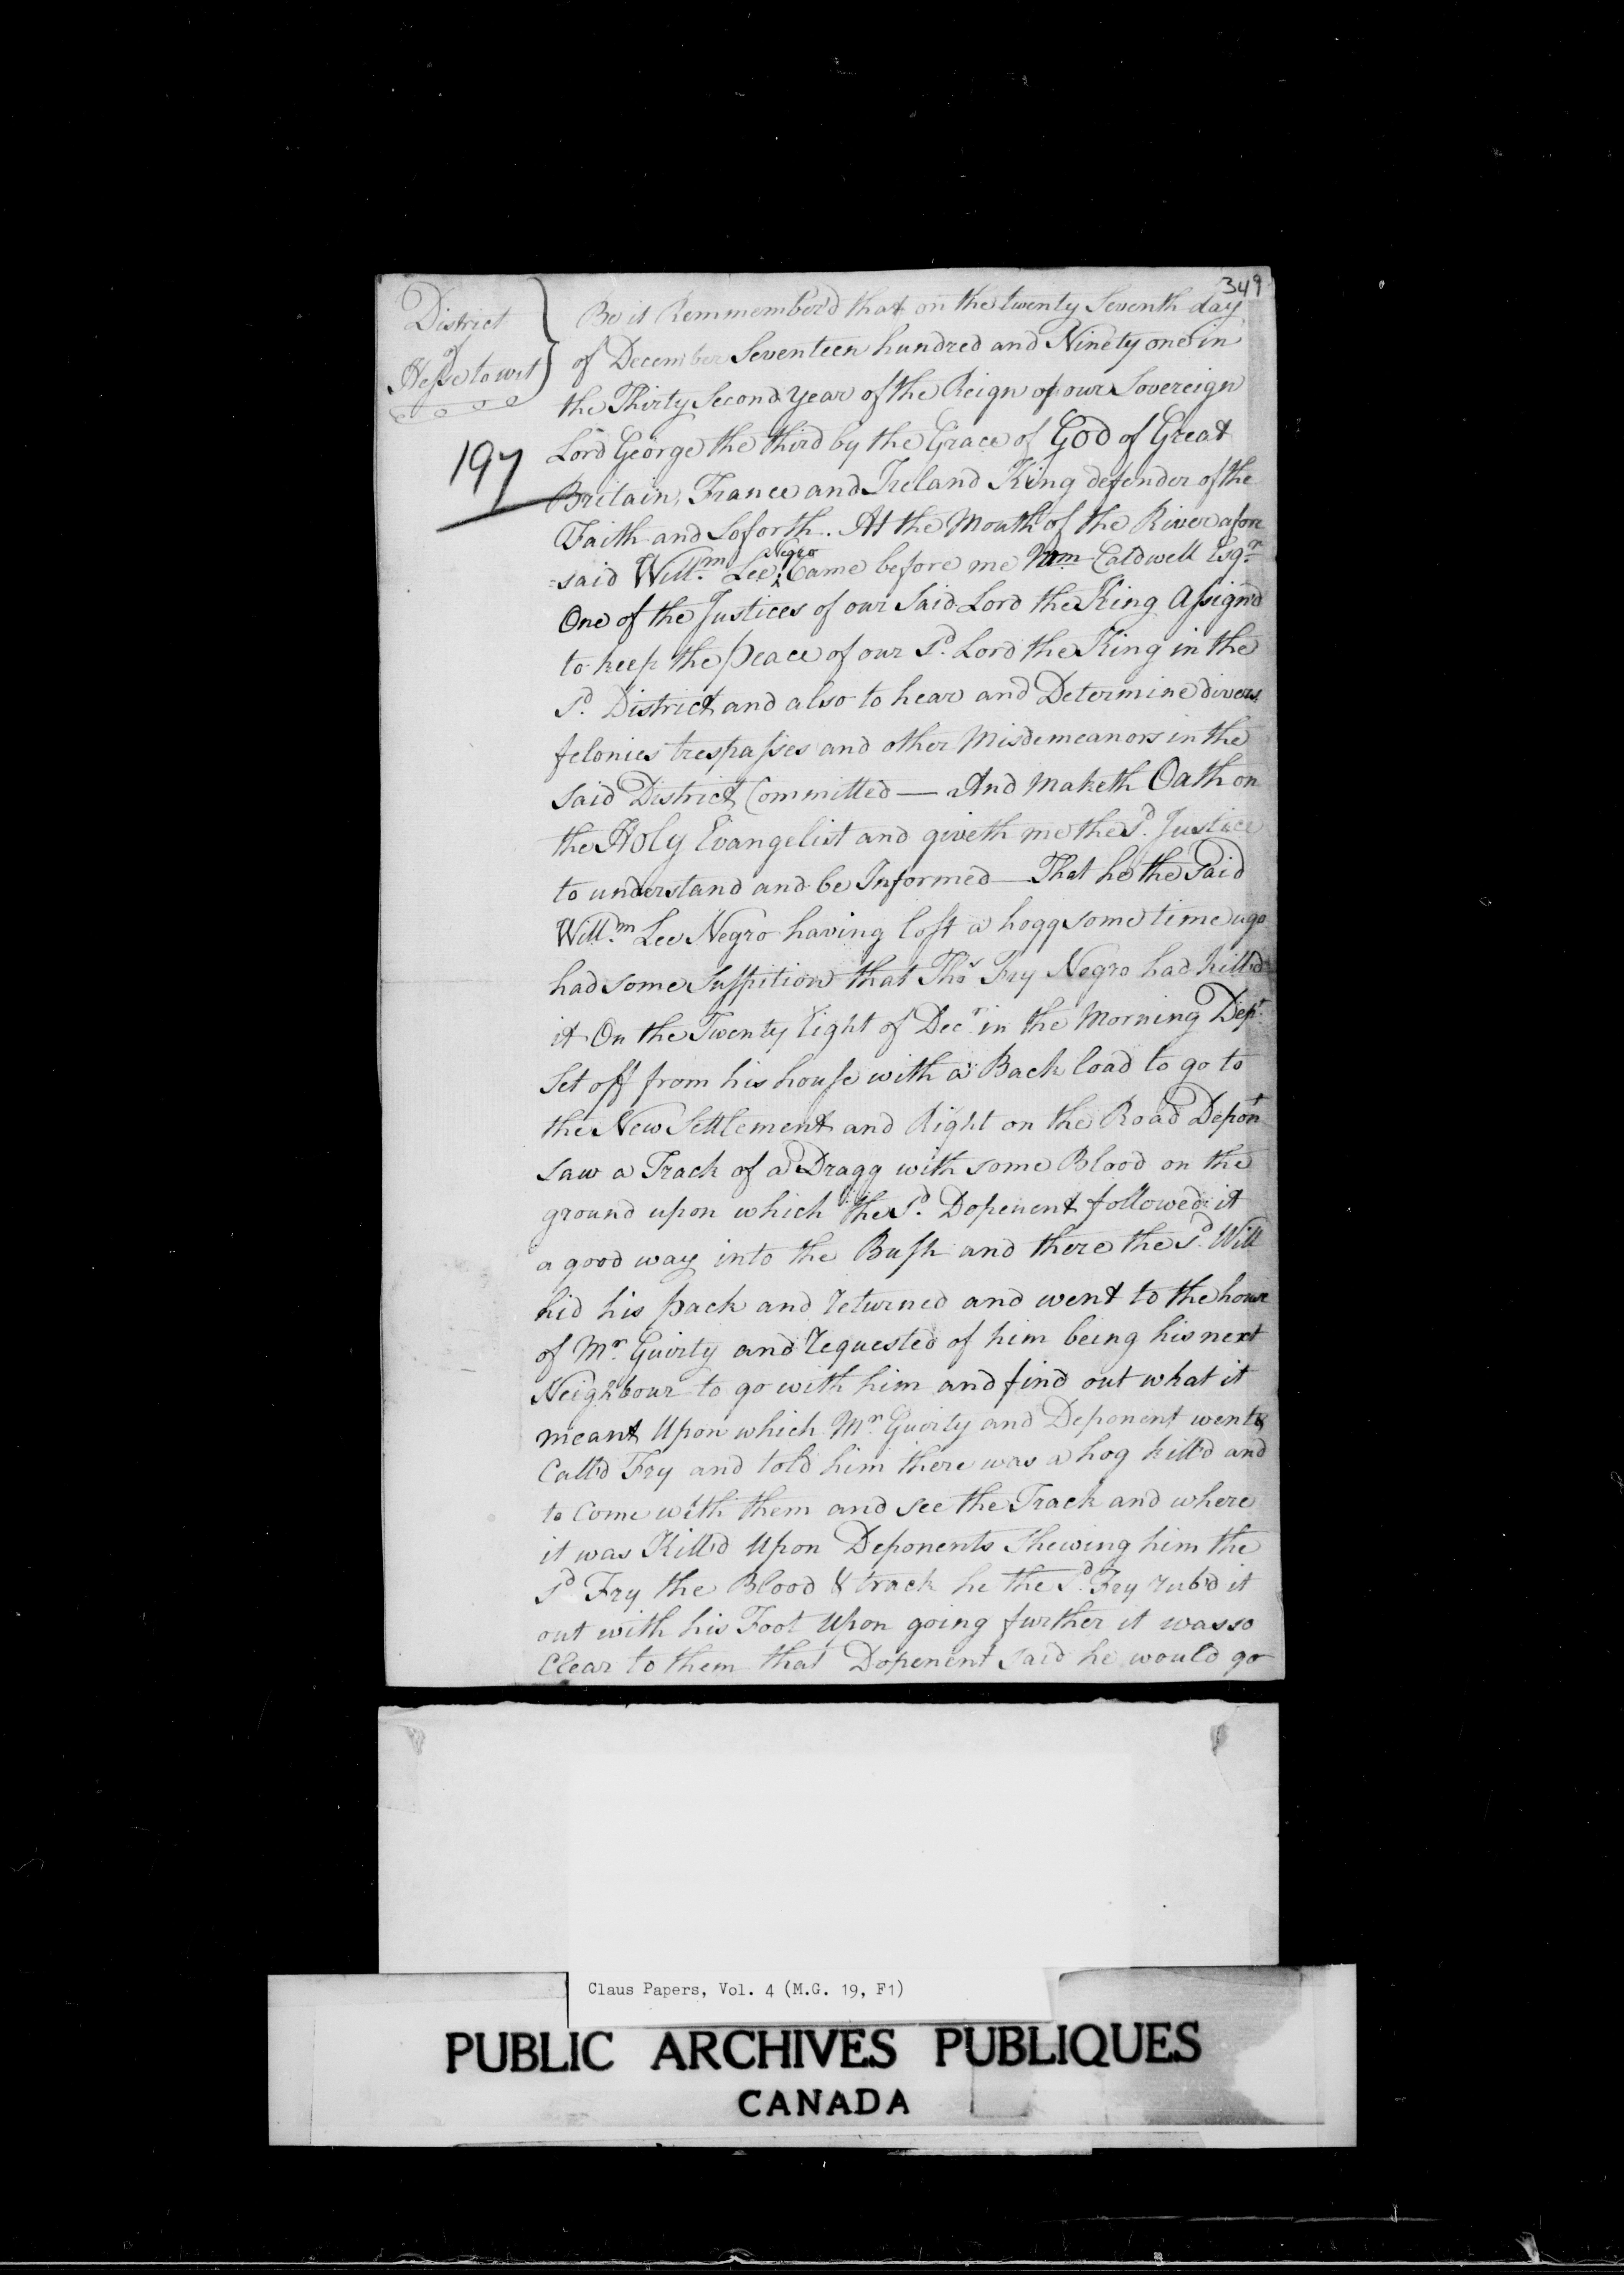 349
District
of
Hesse to wit
197
Be it Remmember'd that on the twenty Seventh day
of December Seventeen hundred and Ninety one in
the Thirty Second Year of the Reign of our Sovereign
Lord George the third by the Grace of God of Great
Britain, France and Ireland King defender of the
Faith and Soforth. At the Mouth of the River afore
=said Will.m Lee Negro Came before me Wm Caldwell Esq.r
One of the Justices of our Said Lord the King Assign'd
to keep the peace of our S.d Lord the King in the
S.d District and also to hear and Determine divers
felonies trespasses and other Misdemeanors in the
Said District Committed — And Maketh Oath on
the Holy Evangelist and giveth me the S.d Justice
to understand and be Informed — That he the Said
Will.m Lee Negro having lost a hogg some time ago
had some Suspition that Tho.s Fry Negro had kill'd
it On the Twenty Eight of Dec.r in the Morning Dep.t
Set off from his house with a Back load to go to
the New Settlement and Right on the Road Depon.t
saw a Track of a Dragg with some Blood on the
ground upon which the S.d Dopenent followed it
a good way into the Bush and there the S.d Will
hid his pack and returned and went to the house
of M.r Guirty and requested of him being his next
Neighbour to go with him and find out what it
meant Upon which M.r Guirty and Deponent went &
Call'd Fry and told him there was a hog kill'd and
to Come with them and see the Track and where
it was Kill'd Upon Deponents Shewing him the
S.d Fry the Blood & track he the S.d Fry rub'd it
out with his Foot Upon going further it was so
Clear to them that Dopenent Said he would go
Claus Papers, Vol. 4 (M.G. 19, F1)
PUBLIC ARCHIVES PUBLIQUES
CANADA